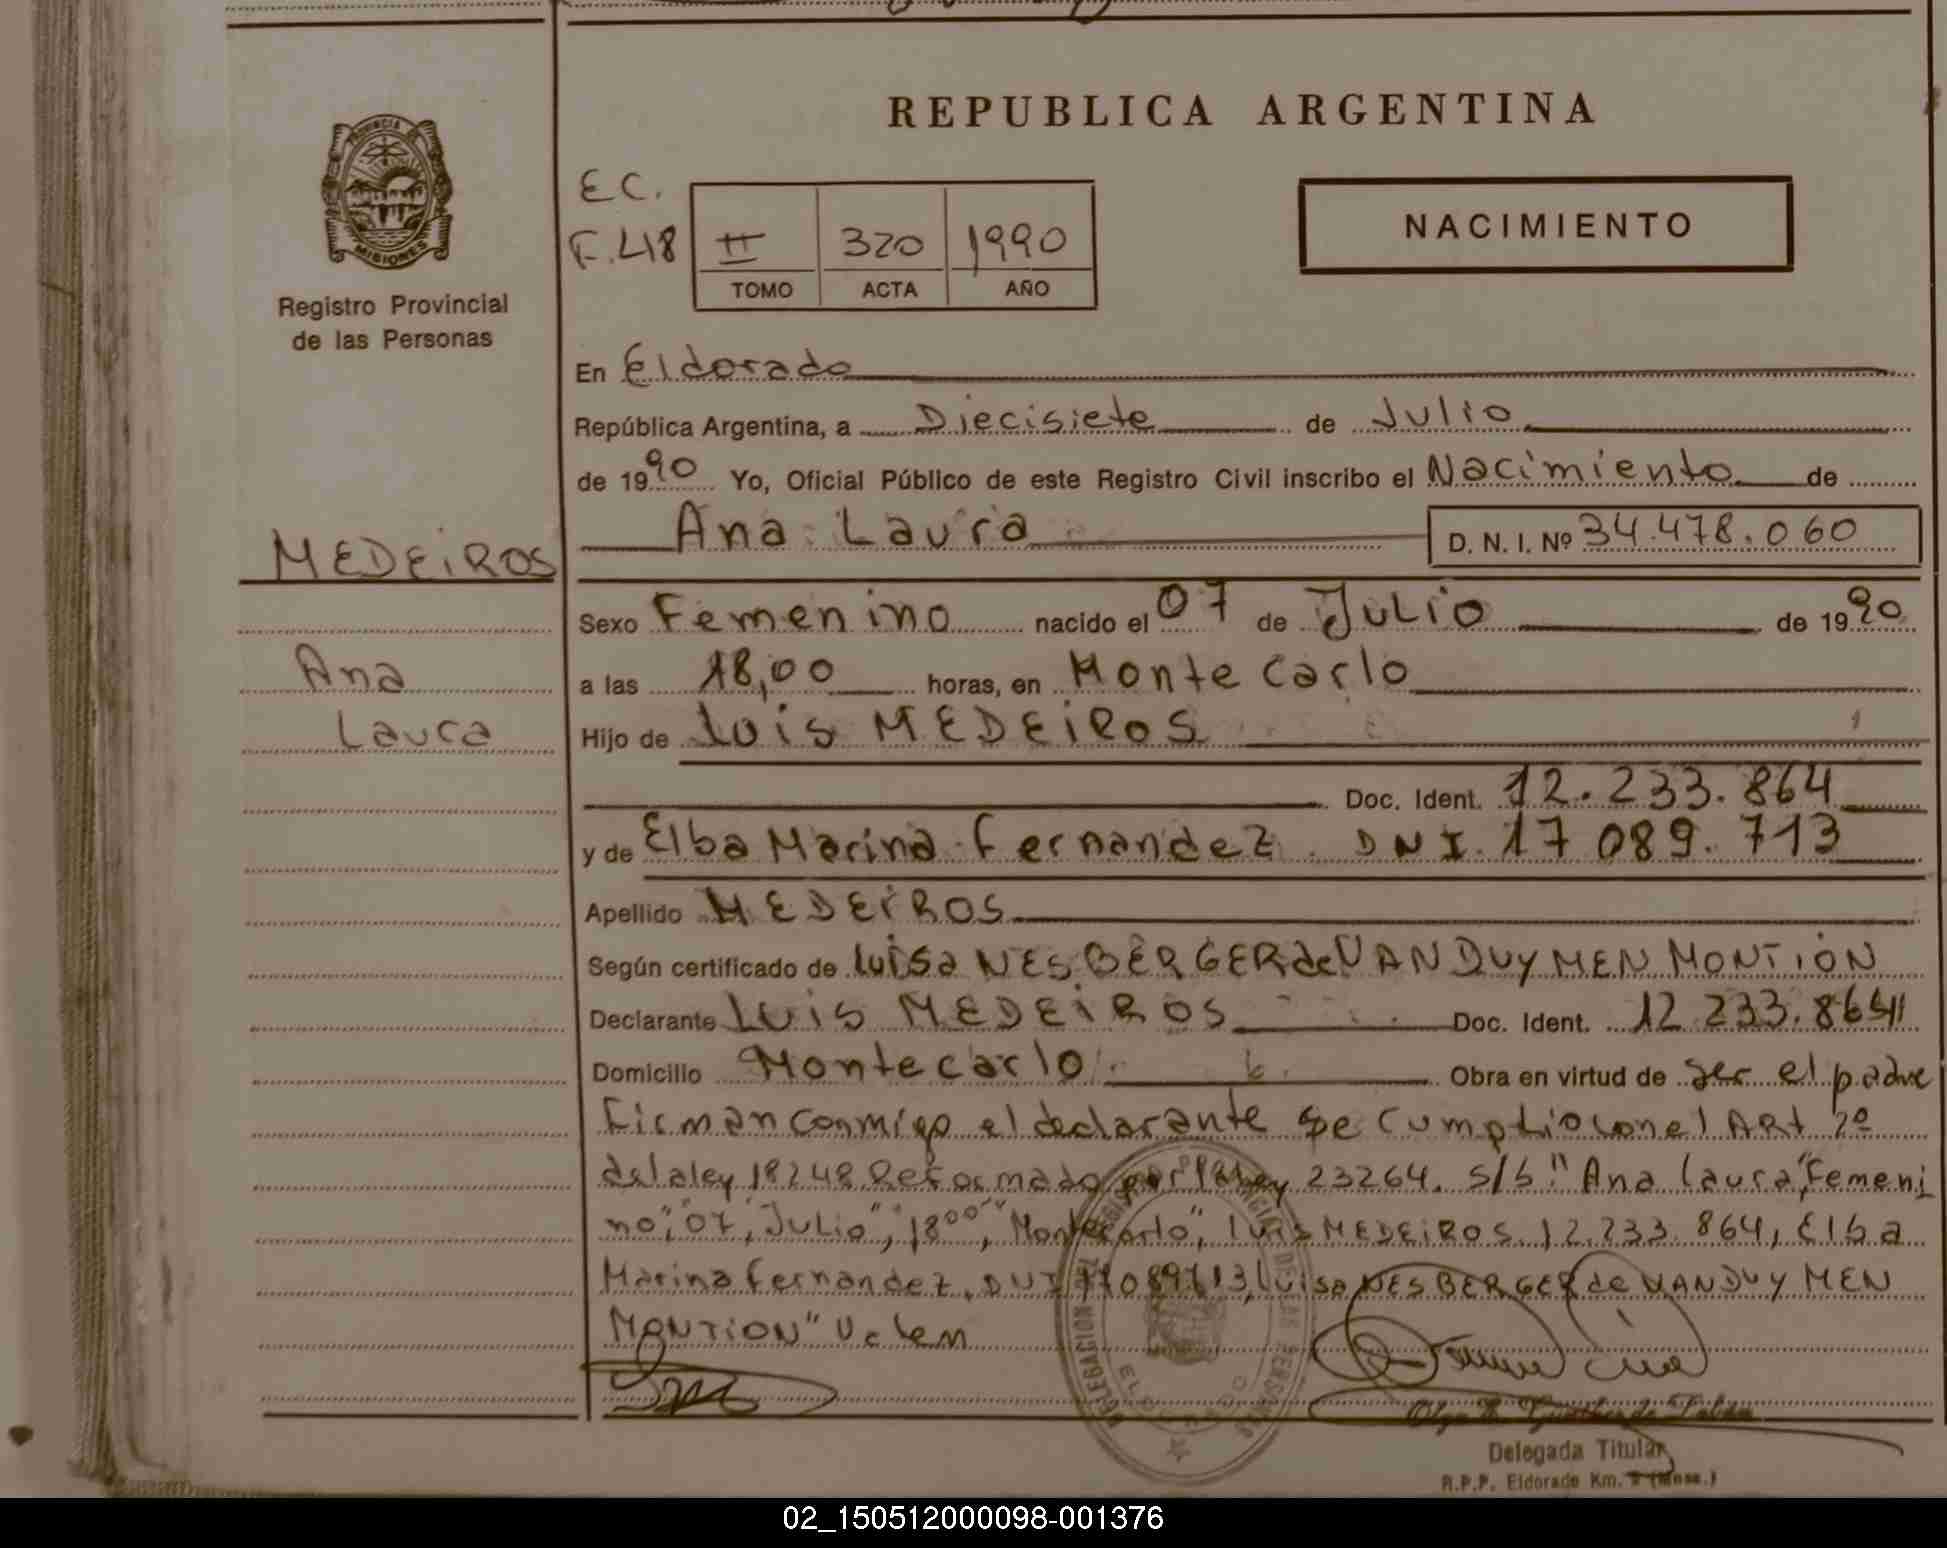 REPUBLICA ARGENTINA
PROVINCIA DE
MISIONES
Registro Provincial
de las Personas
E.C.
F. 418
II 320 1990
TOMO ACTA AÑO
NACIMIENTO
En Eldorado
República Argentina, a Diecisiete de Julio
de 1990 Yo, Oficial Público de este Registro Civil inscribo el Nacimiento de
Ana Laura D. N. I. Nº 34.478.060
MEDEiROS
Ana
Laura
Sexo Femenino nacido el 07 de JULiO de 1990
a las 18,00 horas, en Monte Carlo
Hijo de Luis MEDEiROS
Doc. Ident. 12.233.864
y de Elba Marina Fernandez DNI. 17 089.713
Apellido MEDEiROS
Según certificado de Luisa NES BERGER de VAN DUYMEN MONTiON
Declarante Luis MEDEiROS Doc. Ident. 12 233.864
Domicilio Montecarlo Obra en virtud de ser el padre
Firman conmigo el declarante se cumptio con el ARt 2º
de la ley 18248 Reformado por la ley 23264. S/b "Ana Laura", Femeni
no", "07", "Julio", "18⁰⁰", "Montecarlo", Luis MEDEiROS 12.233 864, Elba
Marina Fernandez, DNI 17089713, Luisa NES BERGER de VAN DUYMEN
MONTION" Valen
DELEGACION DE LAS PERSONAS
ELDORADO
Delegada Titular
R.P.P. Eldorado Km. 9 (Mnes.)
02_150512000098-001376